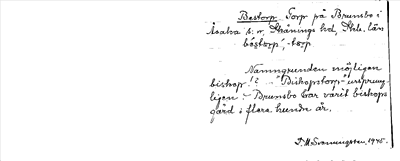 Bestorp. Torp på Brunsbo i
Åsaka s:n, Skånings hd, Skbg. län
bèstòrp, -torp
Namngrunden möjligen
biskop! ? "Biskopstorp" ursprung-
ligen? - Brunsbo har varit biskops
gård i flera hundr. år.
J.M. Svenungsson, 1945.